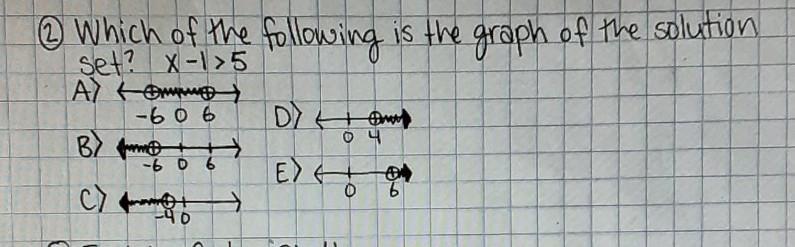 ② Which of the following is the graph of the solution
set? x-1>5
A)
-6 0 6
B)
-6 0 6
C)
-4 0
D)
0 4
E)
0 6